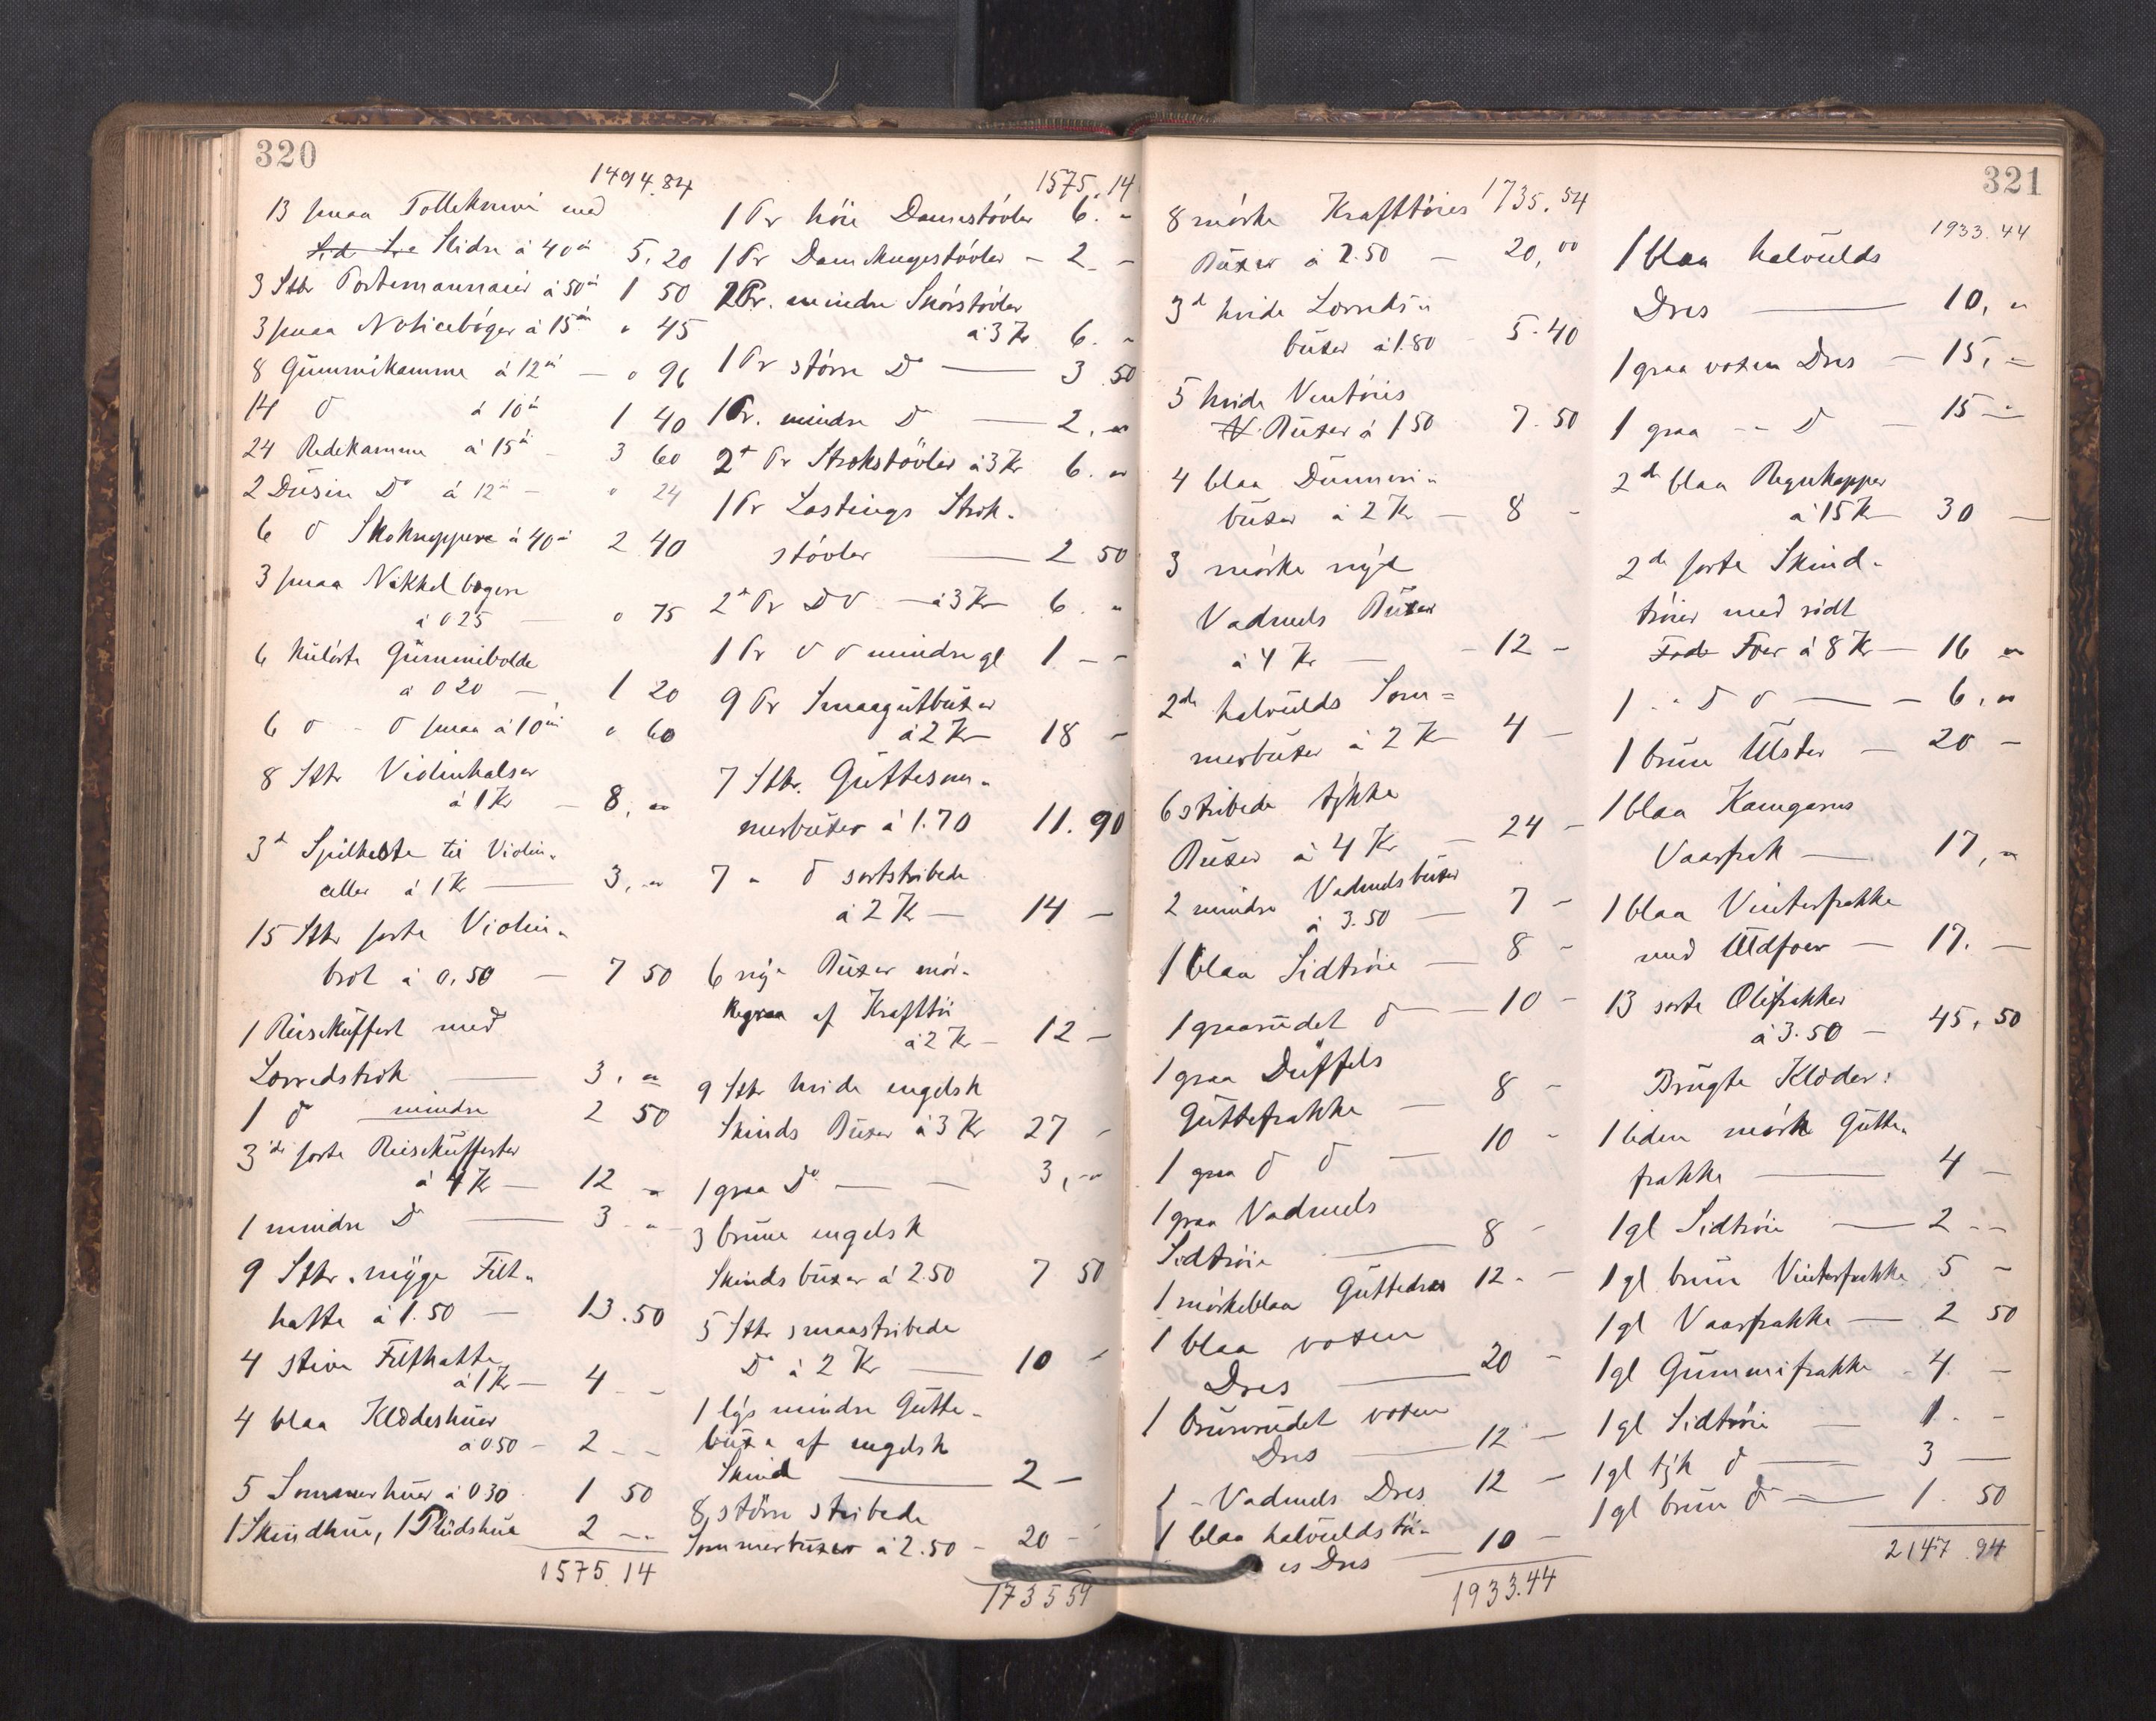 320
1494.84
13 smaa Tollekniver med
Slidre à 40 ö 5,20
3 Stkr Portemonnaier à 50 ö 1 50
3 smaa Noticebøger à 15 ö " 45
8 Gummikamme à 12 ö — " 96
14 do à 10 ö 1 40
24 Redekamme à 15 ö - 3 60
2 Dusin Do à 12 ö - " 24
6 do Skoknappere à 40 ö 2 40
3 smaa Nikkel bægere
à 0 25 — " 75
6 kulørte Gummibolde
à 0 20 — 1 20
6 do - do smaa à 10 ö " 60
8 Stkr Violinhalser
à 1 Kr — 8, "
3 Violin-
celler à 1 Kr — 3, "
15 Stkr sorte Violin-
bret à 0,50 — 7 50
1 Reisekuffert med
Lærredstræk — 3, "
1 do mindre 2 50
3 de sorte Reisekufferter
à 4 Kr — 12 "
1 mindre Do — 3 - "
9 Stkr. nÿge Filt-
hatte à 1.50 — 13.50
4 stive Filthatte
à 1 Kr — 4 - -
4 blaa Klædeshuer
à 0 50 - 2 - -
5 Sommerhuer à 0 30 1 50
1 Skindhue, 1 Plüdshue 2 - -
1575.14
1575.14
1 Pr höie Damestövler 6. -
1 Pr Damestövler - 2 - -
2 Pr. mindre Snörstövler
à 3 Kr 6. "
1 Pr större Do — 3.50
1 Pr. mindre Do — 2, "
2 Pr Strikstövler à 3 Kr 6. "
1 Pr Lastings Strik-
stövler — 2 50
2 Pr Do do — à 3 Kr 6. "
1 Pr do do mindre gl 1 - -
9 Pr Smaagutbuxer
à 2 Kr 18 -
7 Stkr. Guttesom-
merbuxer à 1.70 11.90
7 " do sortstribede
à 2 Kr — 14 -
6 nÿe Buxer mør-
kegraa af Krafttöi
à 2 Kr - 12 -
9 Stkr hvide engelsk
Skinds Buxer à 3 Kr 27 -
1 graa Do — — 3, "
3 brune engelsk
Skindsbuxer à 2.50 7 50
5 Stkr smaastribede
Do à 2 Kr — 10 -
1 lÿs mindre Gutte-
buxe af engelsk
Skind — 2 -
8 större stribede
Sommerbuxer à 2.50 - 20 -
1735 54
1735.54
8 mørke Krafttöies
Buxer à 2.50 — 20,00
3 d hvide Lærreds-
buxer à 1.80 5.40
5 hvide Ventöies
Buxer à 1 50 7.50
4 blaa Dunnin-
buxer à 2 Kr — 8 -
3 mørke nÿe
Vadmels Buxer
à 4 Kr — 12 -
2 de halvulds Som-
merbuxer à 2 Kr 4 -
6 stribede tÿkke
Buxer à 4 Kr — 24 -
2 mindre Vadmelsbuxer
à 3.50 — 7 -
1 blaa Sidtröie — 8 -
1 graarudet do — 10 -
1 graa Duffels
Guttefrakke — 8 -
1 graa do do — 10 -
1 graa Vadmels
Sidtröie — 8 -
1 mørkeblaa Guttedres 12 - -
1 blaa voxen
Dres — 20 -
1 brunrudet voxen
Dres — 12 -
1 - Vadmels Dres 12 -
1 blaa halvuldstöi-
es Dres — 10 -
1933.44
321
1933.44
1 blaa halvulds
Dres — 10, "
1 graa voxen Dres — 15, =
1 graa - - do — 15 - -
2 de blaa Regnkapper
à 15 Kr 30 —
2 de sorte Skind-
tröier med rödt
Foer à 8 Kr — 16 "
1 - " do do — - 6, "
1 brun Ulster — 20 -
1 blaa Kamgarns
Vaarfrak — 17, "
1 blaa Vinterfrakke
med Uldfoer — 17. —
13 sorte Oliefrakker
à 3.50 — 45,50
Brugte Klæder:
1 liden mørk Gutte-
frakke — 4 -
1 gl Sidtröie — 2 - -
1 gl brun Vinterfrakke 5 -
1 gl Vaarfrakke — 2 50
1 gl Gummifrakke - 4 -
1 gl Sidtröie — 1 - -
1 gl tÿk do — 3 —
1 gl brun do — 1. 50
2147.94